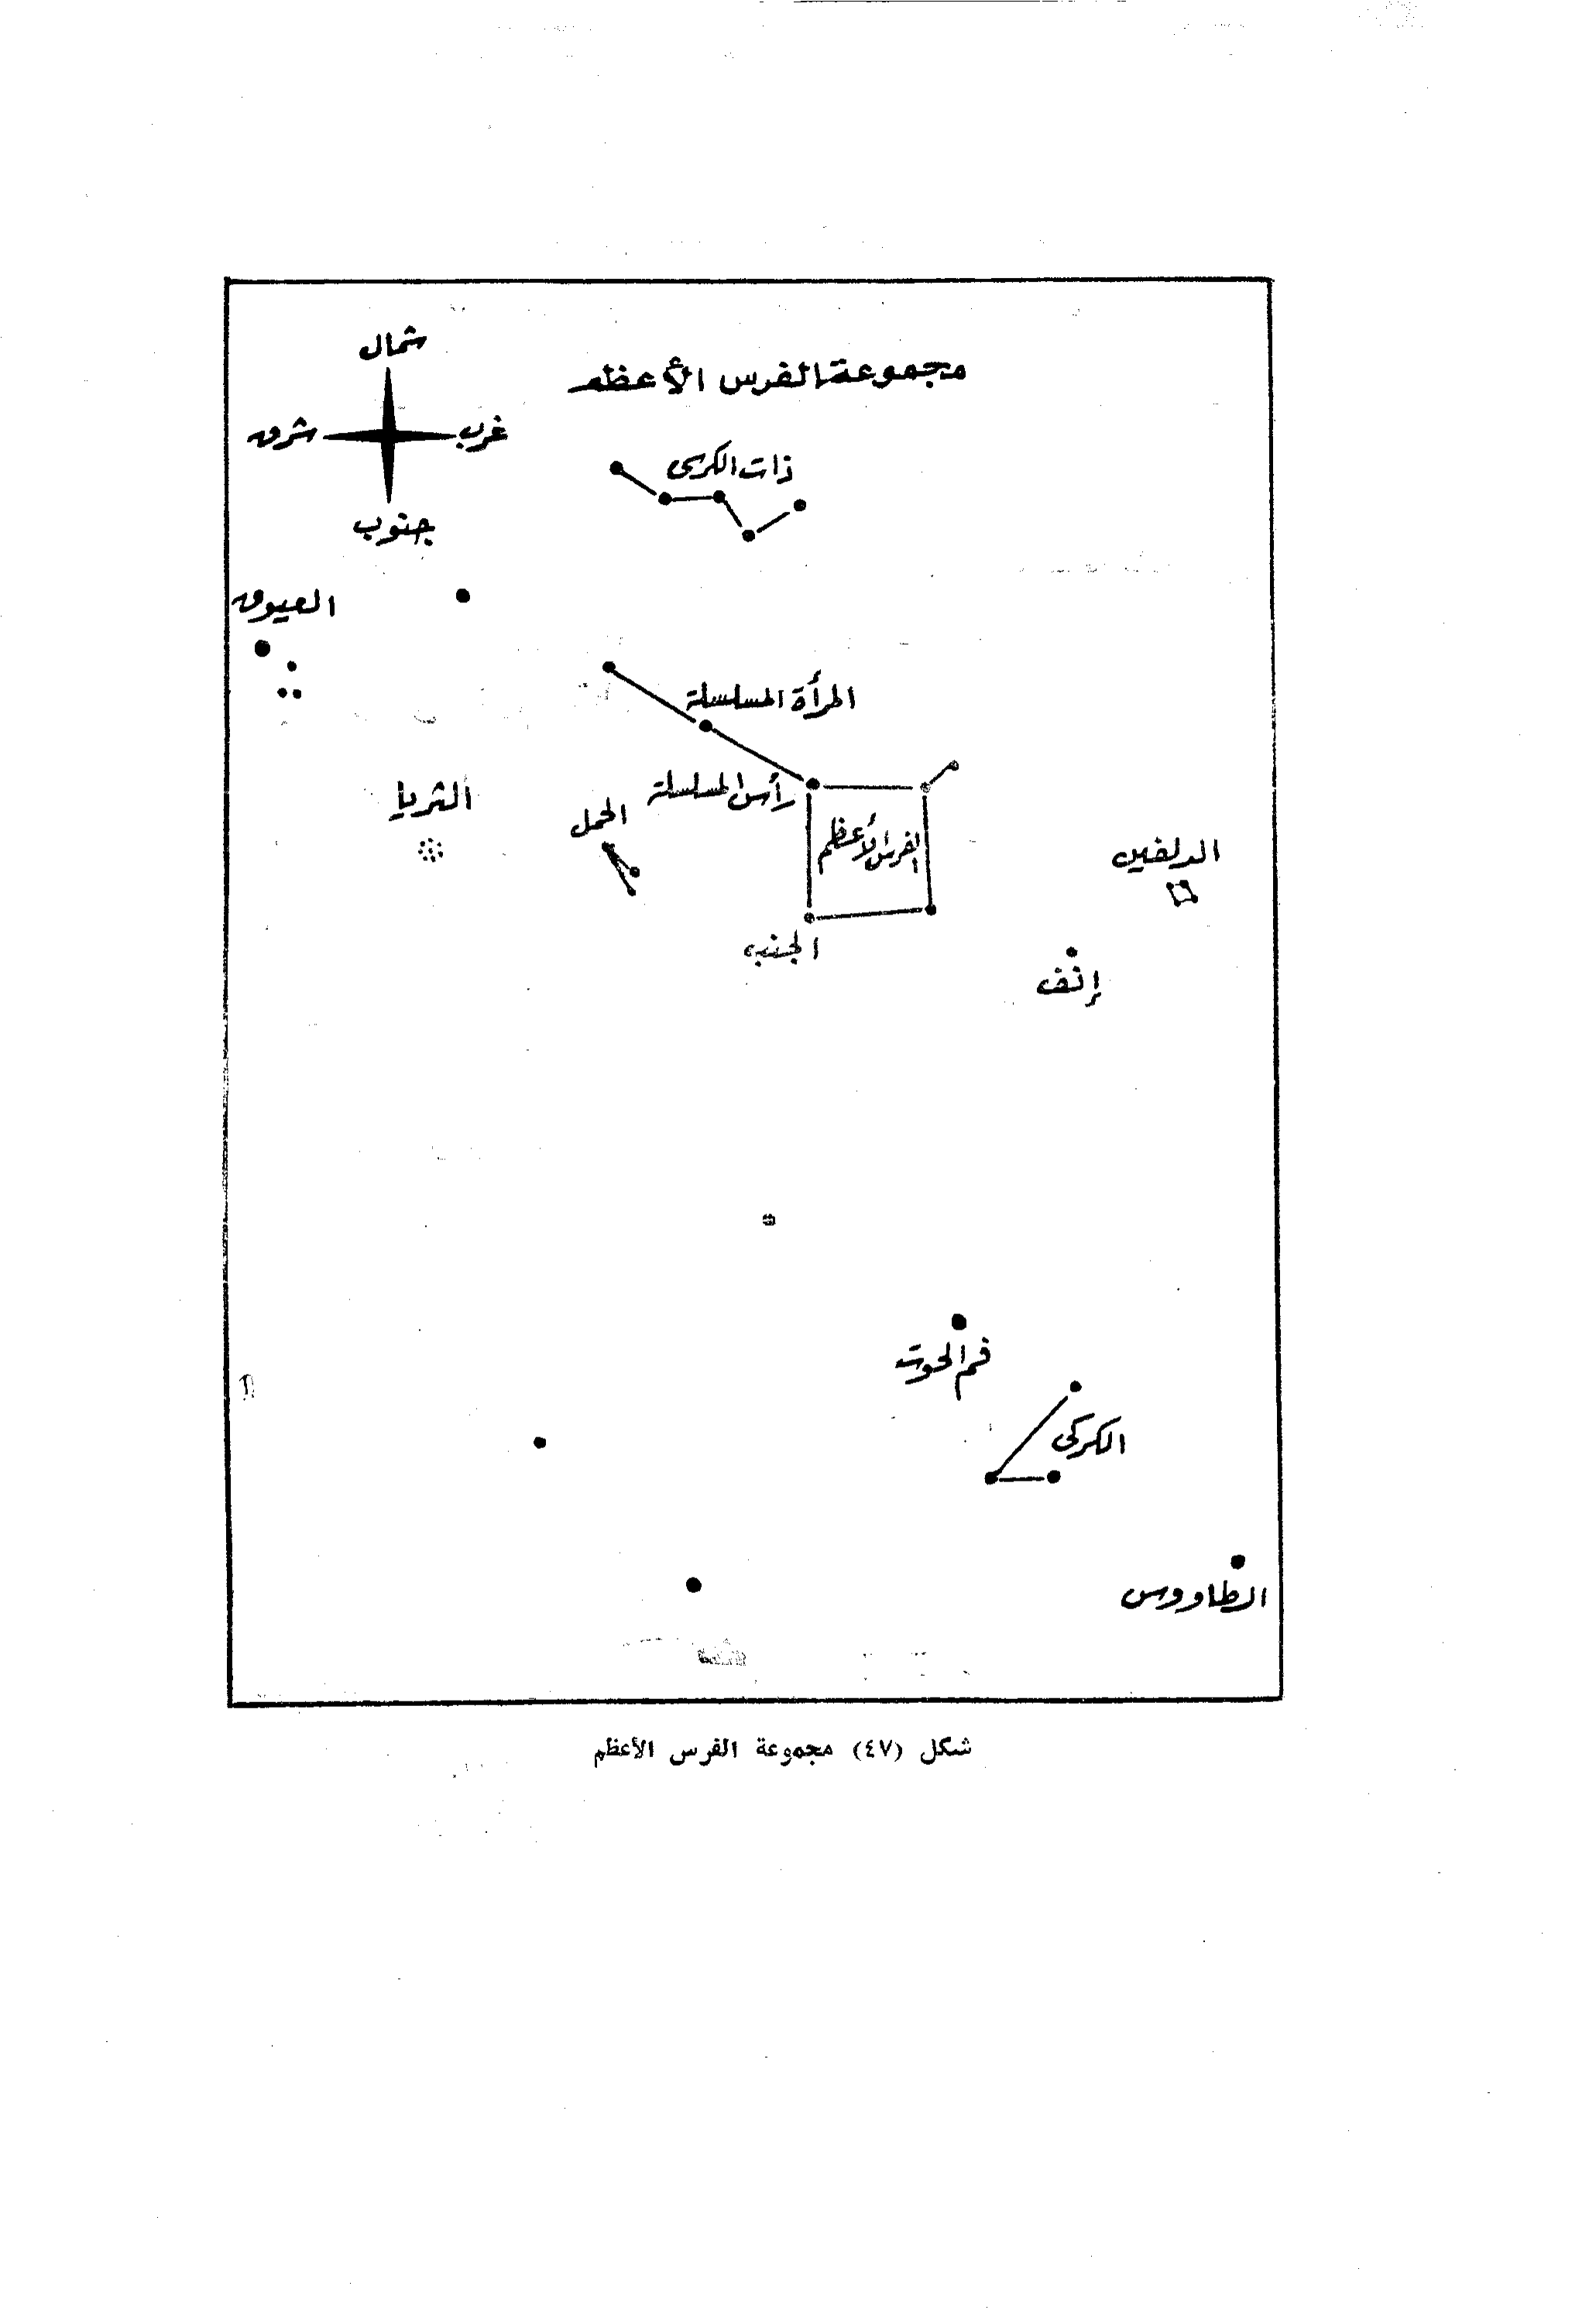 شمال
مجموعة الفرس الأعظم
غرب
شرق
ذات الكرسى
جنوب
العيوق
المرأة المسلسلة
رأس المسلسلة
الثريا
الحمل
الفرس الأعظم
الدلفين
الجنب
إنف
فم الحوت
الكركى
الطاووس
شكل (٤٧) مجموعة الفرس الأعظم